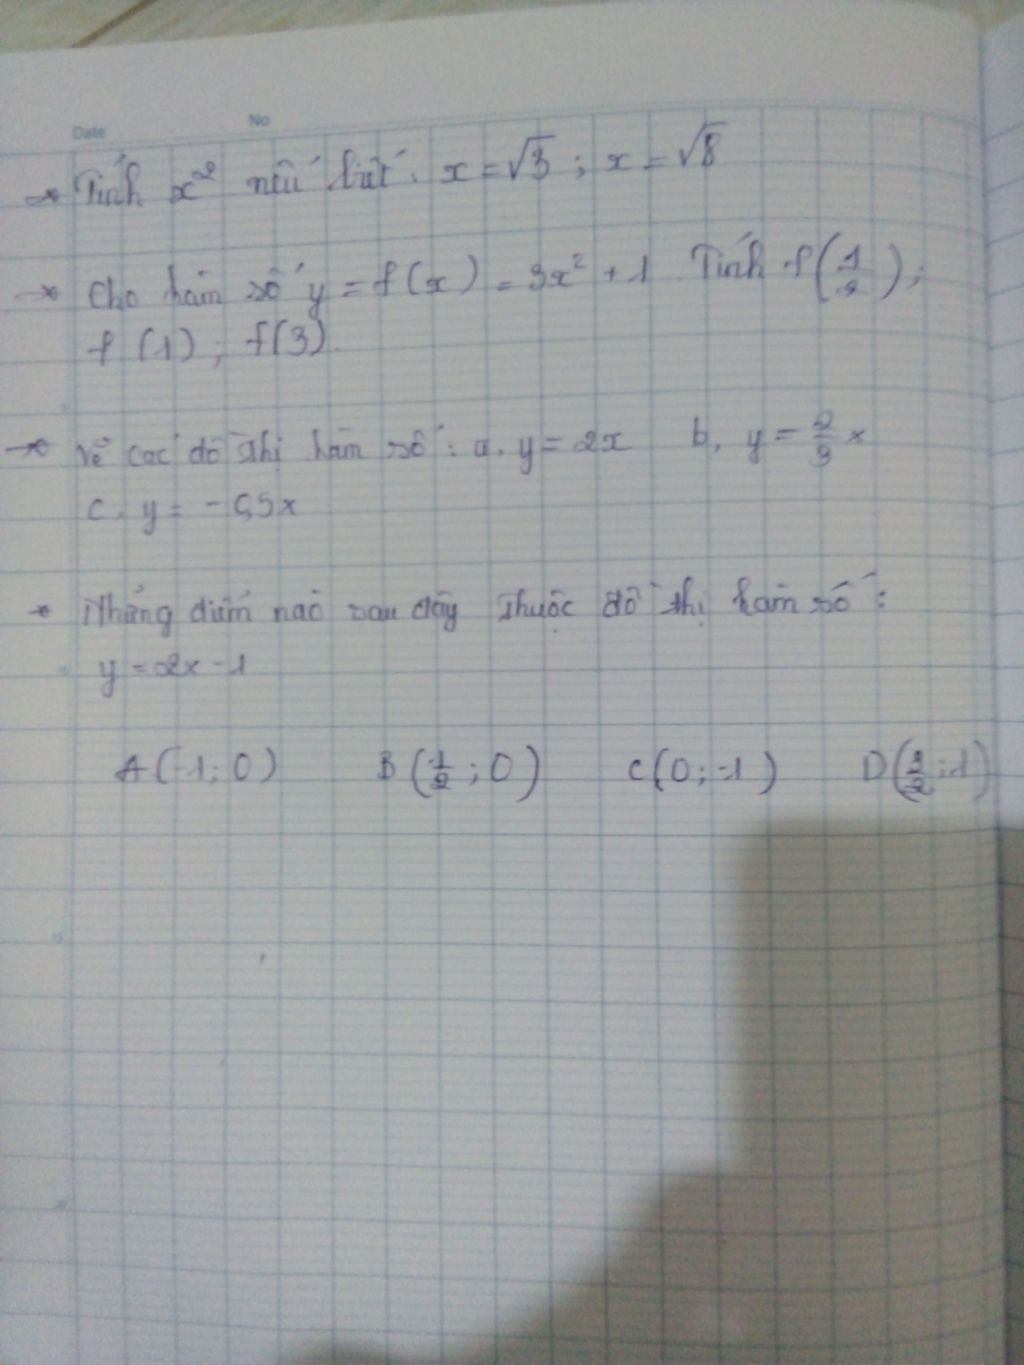 Date No
→ Tính x² nếu biết: x = √3 ; x = √8
→ Cho hàm số y = f(x) = 3x² + 1. Tính f(1/2);
f(1); f(3).
→ Vẽ các đồ thị hàm số: a, y = 2x b, y = 2/3 x
c, y = -0,5x
→ Những điểm nào sau đây thuộc đồ thị hàm số:
y = 2x - 1
A(-1; 0) B(1/2; 0) C(0; -1)